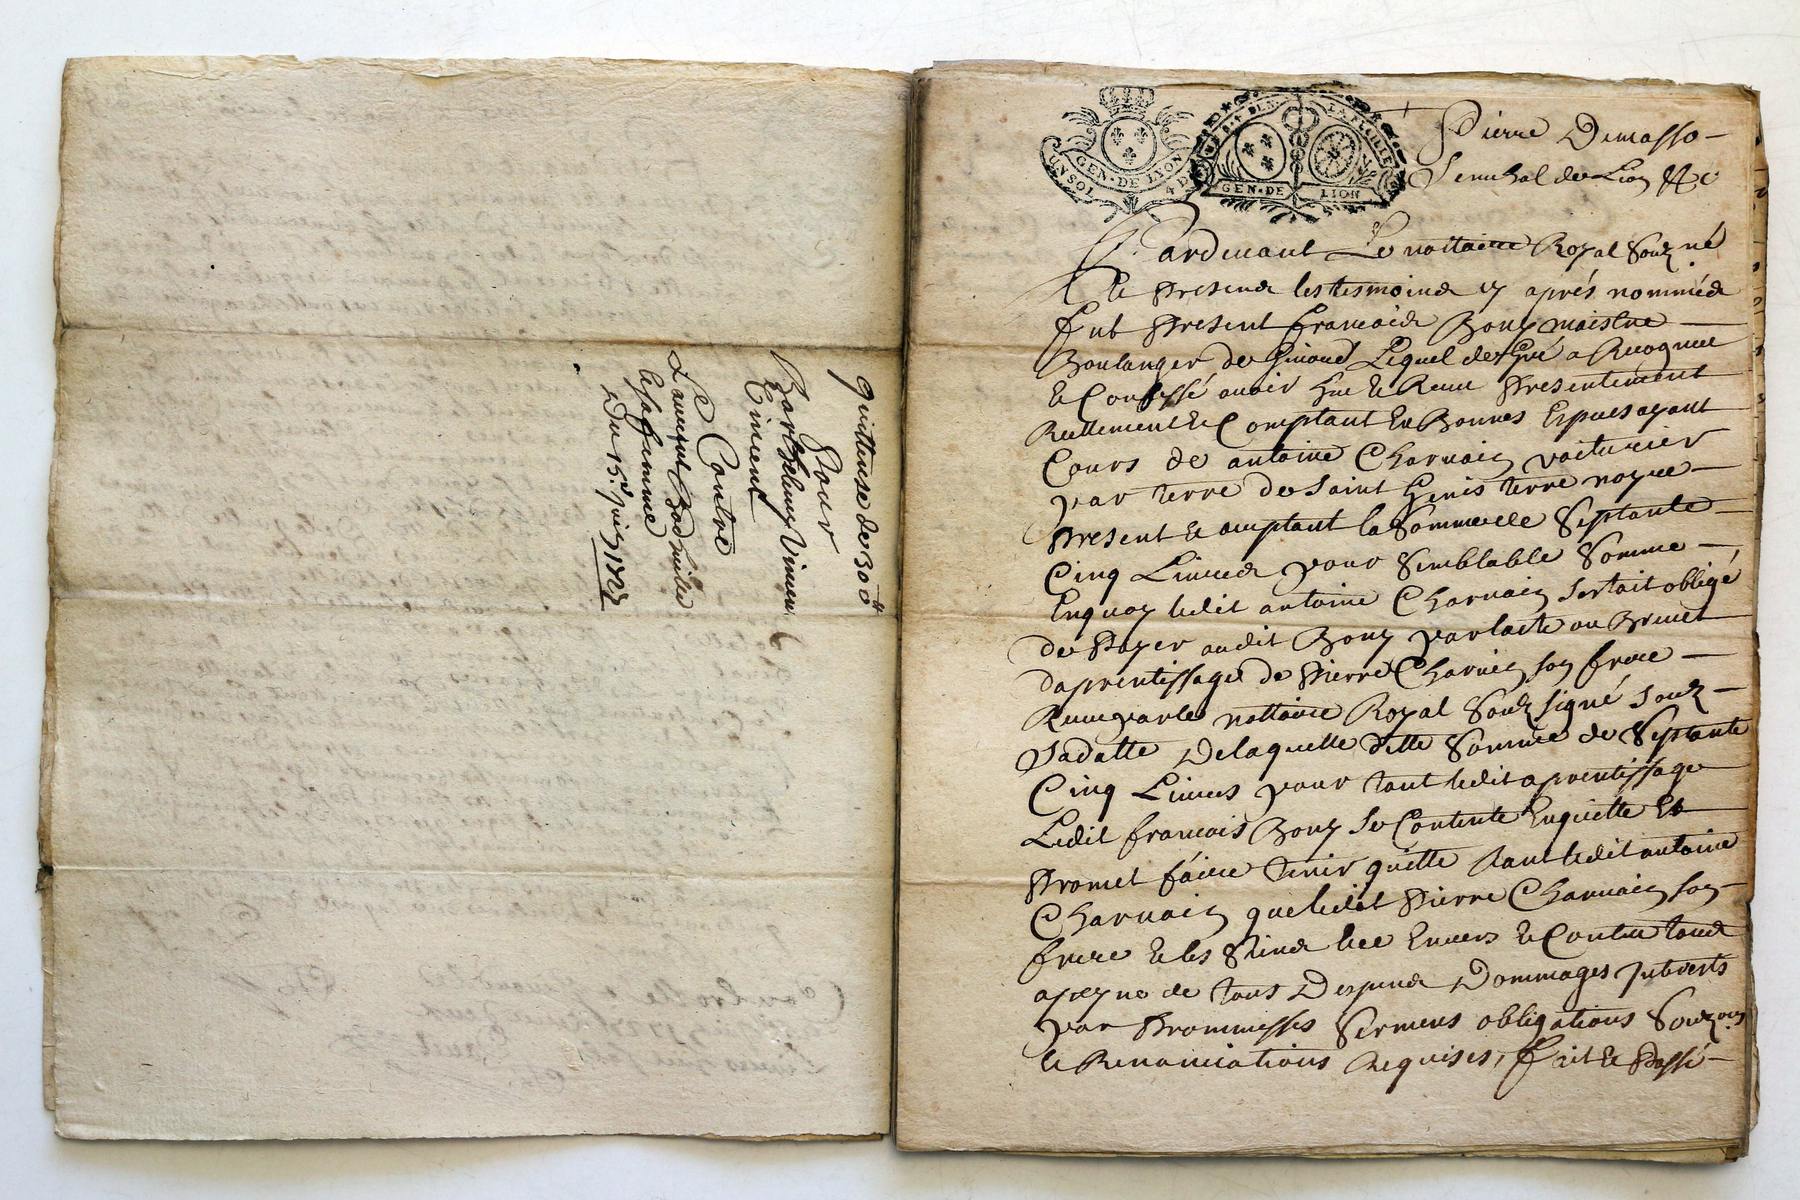 quittense de 30 ₶
Pour
Barthelemy Vincent
Contre
Du 15e Juin
UN SOL
GEN · DE LYON
4 D
LA FEUILLE
GEN · DE LION
Pierre Demasso
Senechal de Lion &c
Pardevant Le nottaire Royal Souz né
Et Presens les tesmoins cy aprés nommés
fut Present francois Bony maistre
Boulanger de Lequel de Gré a Recognu
et Confessé avoir heu et Receu Presentement
Reellement et Comptant En Bonnes Especes ayant
Cours de antoine Charvain voiturier
par terre de Saint Genis terre noyre
Present et aceptant la Somme de Septante
Cinq Livres pour Semblable Somme
Enquoy ledit antoine Charvain Sestait obligé
de Payer audit Bony par lacte ou Brevet
daprentissage de Pierre Charvin son frere
Receu par le nottaire Royal Souz signé Souz
Sadatte De laquelle ditte Somme de Septante
Cinq Livres pour tout ledit aprentissage
Ledit francois Bony Se Contente Enquitte Et
Promet faire tenir quitte tant ledit antoine
Charvain que ledit Pierre Charvain son
frere et les Siens Envers et Contre tous
a peyne de tous Despens Dommages Interests
par Prommesses Sermens obligations Souz
et Renonciations Requises, fait et Passé